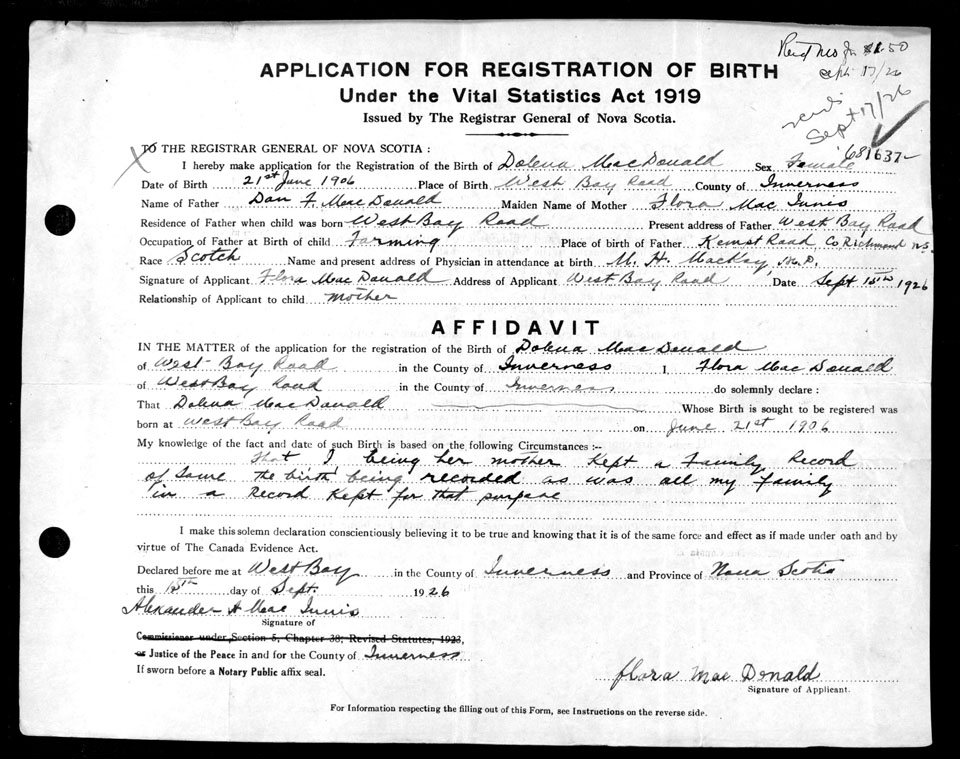 Sept 17/26
Sept 17/26
681637
APPLICATION FOR REGISTRATION OF BIRTH
Under the Vital Statistics Act 1919
Issued by The Registrar General of Nova Scotia.
TO THE REGISTRAR GENERAL OF NOVA SCOTIA :
I hereby make application for the Registration of the Birth of Dolena MacDonald Sex Female
Date of Birth 21st June 1906 Place of Birth West Bay Road County of Inverness
Name of Father Dan F. MacDonald Maiden Name of Mother Flora Mac Innis
Residence of Father when child was born West Bay Road Present address of Father West Bay Road
Occupation of Father at Birth of child Farming Place of birth of Father Kempt Road Co Richmond N.S.
Race Scotch Name and present address of Physician in attendance at birth M. H. MacKay, M.D.
Signature of Applicant Flora MacDonald Address of Applicant West Bay Road Date Sept 15th 1926
Relationship of Applicant to child mother
AFFIDAVIT
IN THE MATTER of the application for the registration of the Birth of Dolena MacDonald
of West Bay Road in the County of Inverness I, Flora MacDonald
of West Bay Road in the County of Inverness do solemnly declare :
That Dolena MacDonald Whose Birth is sought to be registered was
born at West Bay Road on June 21st 1906
My knowledge of the fact and date of such Birth is based on the following Circumstances :--
That I being her mother Kept a Family Record
of same the birth being recorded as was all my Family
in a Record Kept for that purpose
I make this solemn declaration conscientiously believing it to be true and knowing that it is of the same force and effect as if made under oath and by
virtue of The Canada Evidence Act.
Declared before me at West Bay in the County of Inverness and Province of Nova Scotia
this 15th day of Sept. 1926
Alexander A Mac Innis
Signature of
Commissioner under Section 5, Chapter 38, Revised Statutes, 1923,
or Justice of the Peace in and for the County of Inverness
If sworn before a Notary Public affix seal.
Flora Mac Donald
Signature of Applicant.
For Information respecting the filling out of this Form, see Instructions on the reverse side.